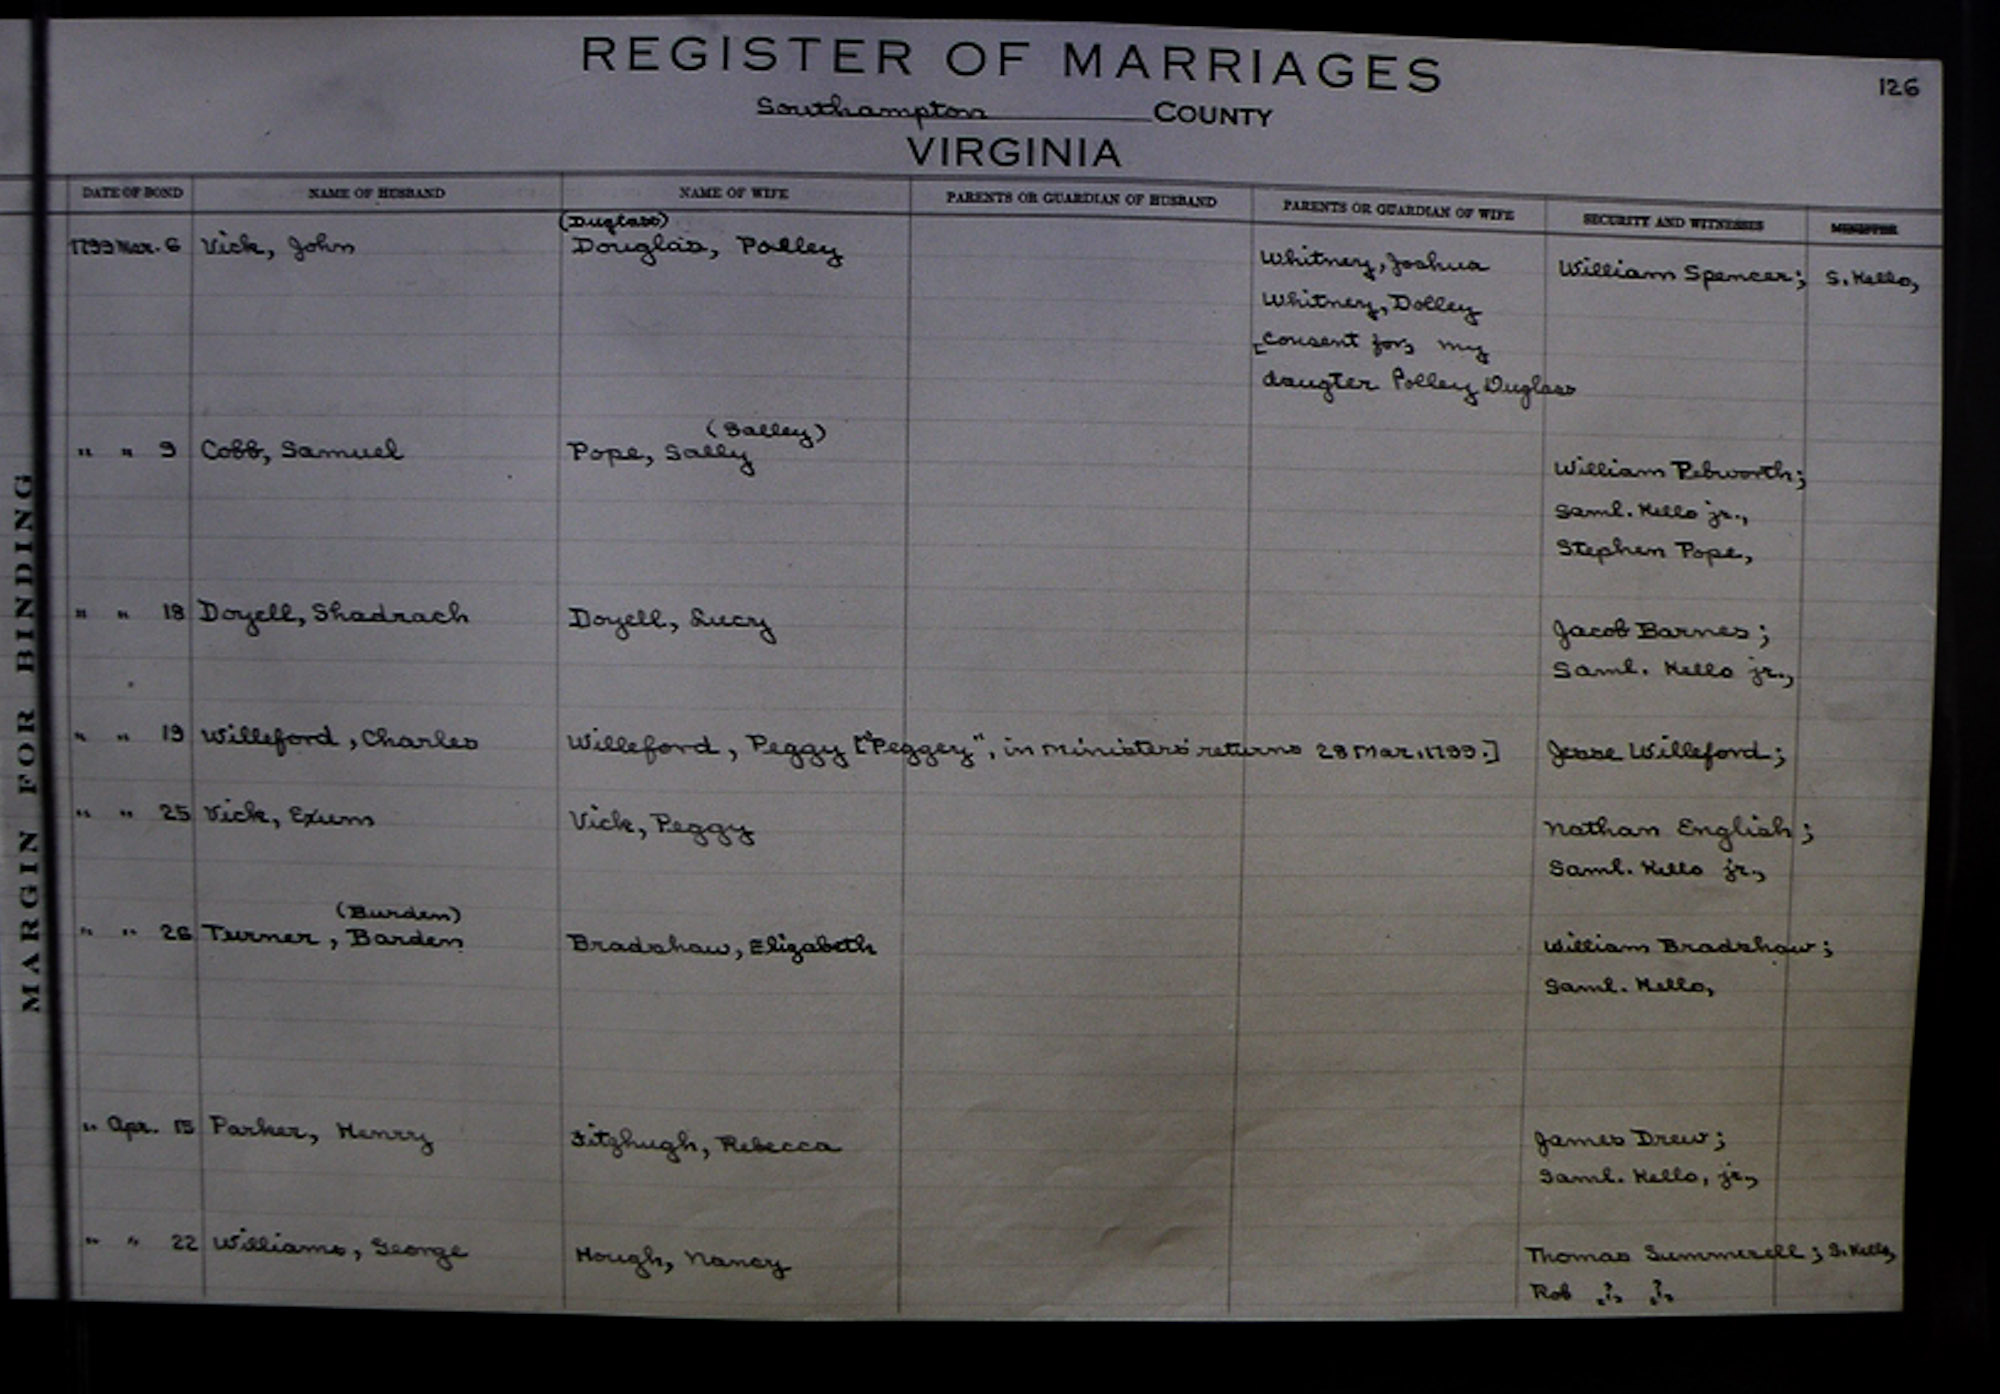 REGISTER OF MARRIAGES
126
Southampton COUNTY
VIRGINIA
DATE OF BOND NAME OF HUSBAND NAME OF WIFE PARENTS OR GUARDIAN OF HUSBAND PARENTS OR GUARDIAN OF WIFE SECURITY AND WITNESSES MINISTER
(Duglass)
1799 Mar. 6 Vick, John Douglas, Polley Whitney, Joshua William Spencer; S. Kello,
Whitney, Dolley
[consent for, my
daugter Polley Duglass
(Salley)
" " 9 Cobb, Samuel Pope, Sally William Pebworth;
Saml. Kello jr.,
Stephen Pope,
" " 18 Doyell, Shadrach Doyell, Lucy Jacob Barnes;
Saml. Kello jr.,
" " 19 Willeford, Charles Willeford, Peggy ["Peggey", in ministers' returns 28 Mar. 1799.] Jesse Willeford;
" " 25 Vick, Exum Vick, Peggy Nathan English;
Saml. Kello jr.,
(Burden)
" " 26 Turner, Barden Bradshaw, Elizabeth William Bradshaw;
Saml. Kello,
" Apr. 15 Parker, Henry Fitzhugh, Rebecca James Drew;
Saml. Kello, jr.,
" " 22 Williams, George Hough, Nancy Thomas Summerell; S. Kello,
Rob ? ?
MARGIN FOR BINDING